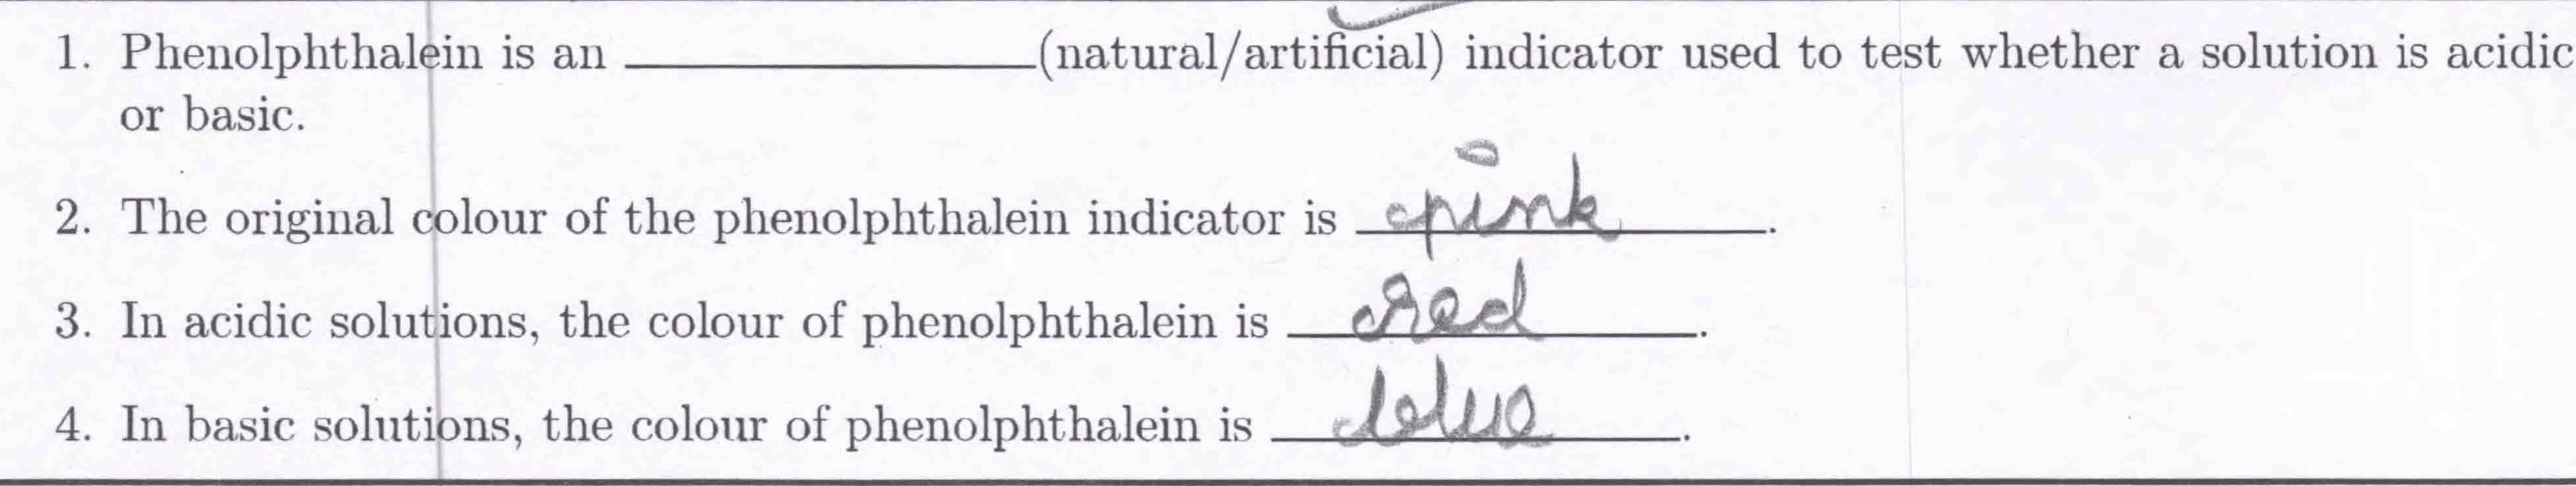 1. Phenolphthalein is an ____________(natural/artificial) indicator used to test whether a solution is acidic
or basic.
2. The original colour of the phenolphthalein indicator is pink.
3. In acidic solutions, the colour of phenolphthalein is red.
4. In basic solutions, the colour of phenolphthalein is blue.